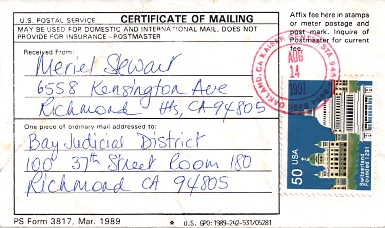 U.S. POSTAL SERVICE CERTIFICATE OF MAILING
MAY BE USED FOR DOMESTIC AND INTERNATIONAL MAIL, DOES NOT
PROVIDE FOR INSURANCE—POSTMASTER
Affix fee here in stamps
or meter postage and
post mark. Inquire of
Postmaster for current
fee.
Received From:
Meriel Stewart
6558 Kensington Ave
Richmond Hts, CA 94805
One piece of ordinary mail addressed to:
Bay Judicial District
100 37th Street Room 180
Richmond CA 94805
PS Form 3817, Mar. 1989
★ U.S. GPO: 1989-242-531/05281
OAKLAND, CA KAISER CENTER STA
AUG
14
1991
50 USA
Switzerland
Founded 1291